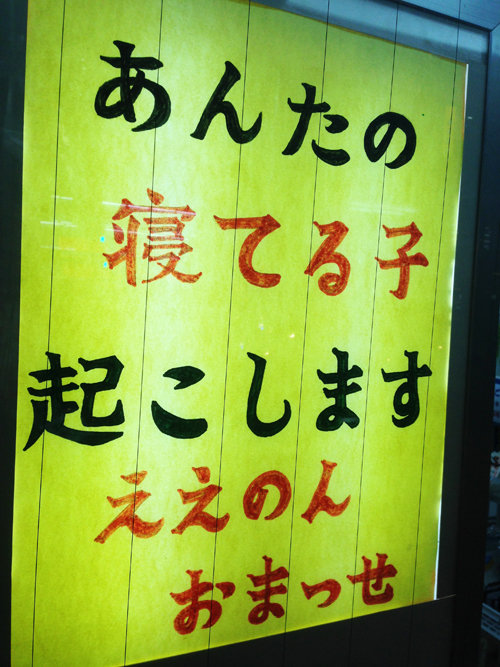 あんたの
寝てる子
起こします
ええのん
おまっせ